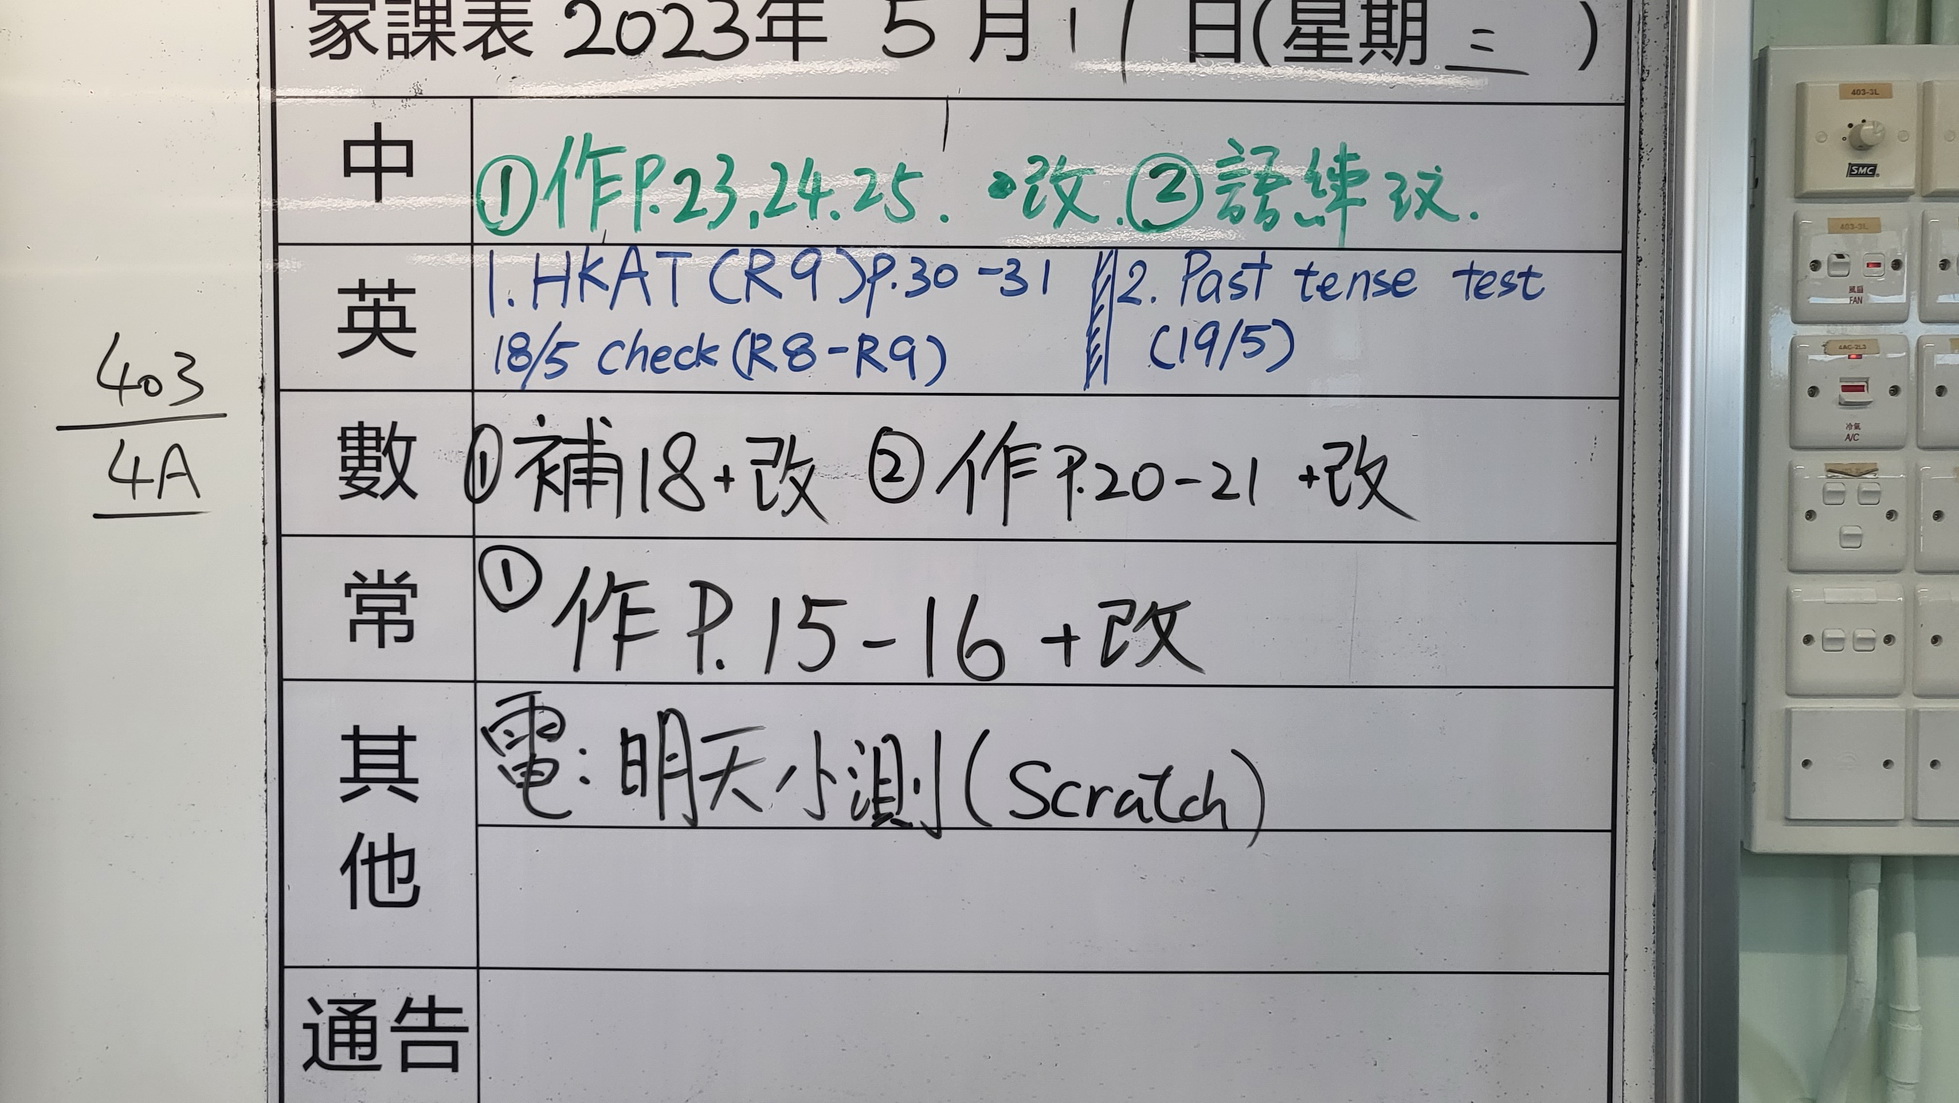 家課表 2023年 5月17日(星期三)
中
①作P.23,24.25. 改.②語練改.
英
1. HKAT(R9)p.30-31
18/5 check(R8-R9)
2. Past tense test
(19/5)
數
①補18+改 ②作P.20-21 +改
常
①作P.15-16+改
其他
電:明天小測(Scratch)
通告
403
4A
403-3L
SMC
403-3L
風扇
FAN
冷氣
A/C